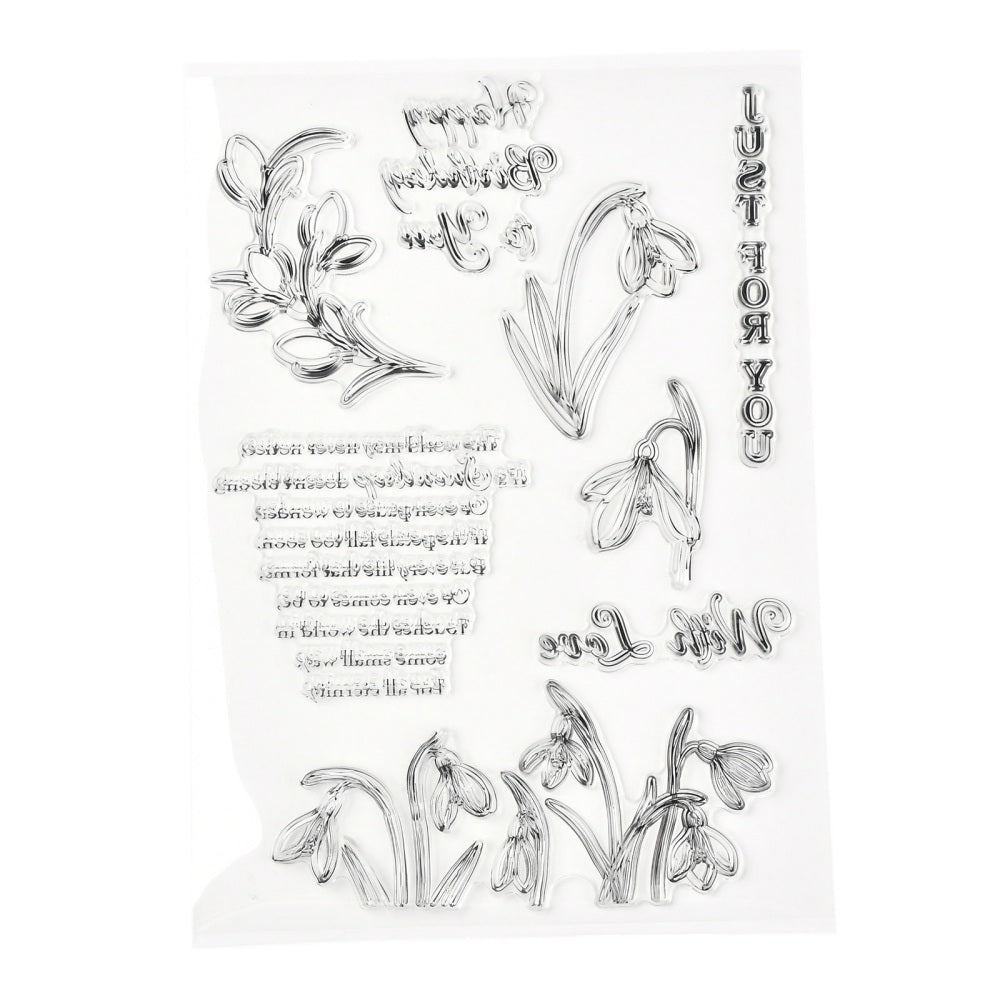 Happy
Birthday
to You
JUST FOR YOU
The world may never notice
If a Snowdrop doesn't bloom,
Or even pause to wonder
If the petals fall too soon.
But every life that forms,
Or even comes to be,
Touches the world in
some small way
For all eternity.
With Love